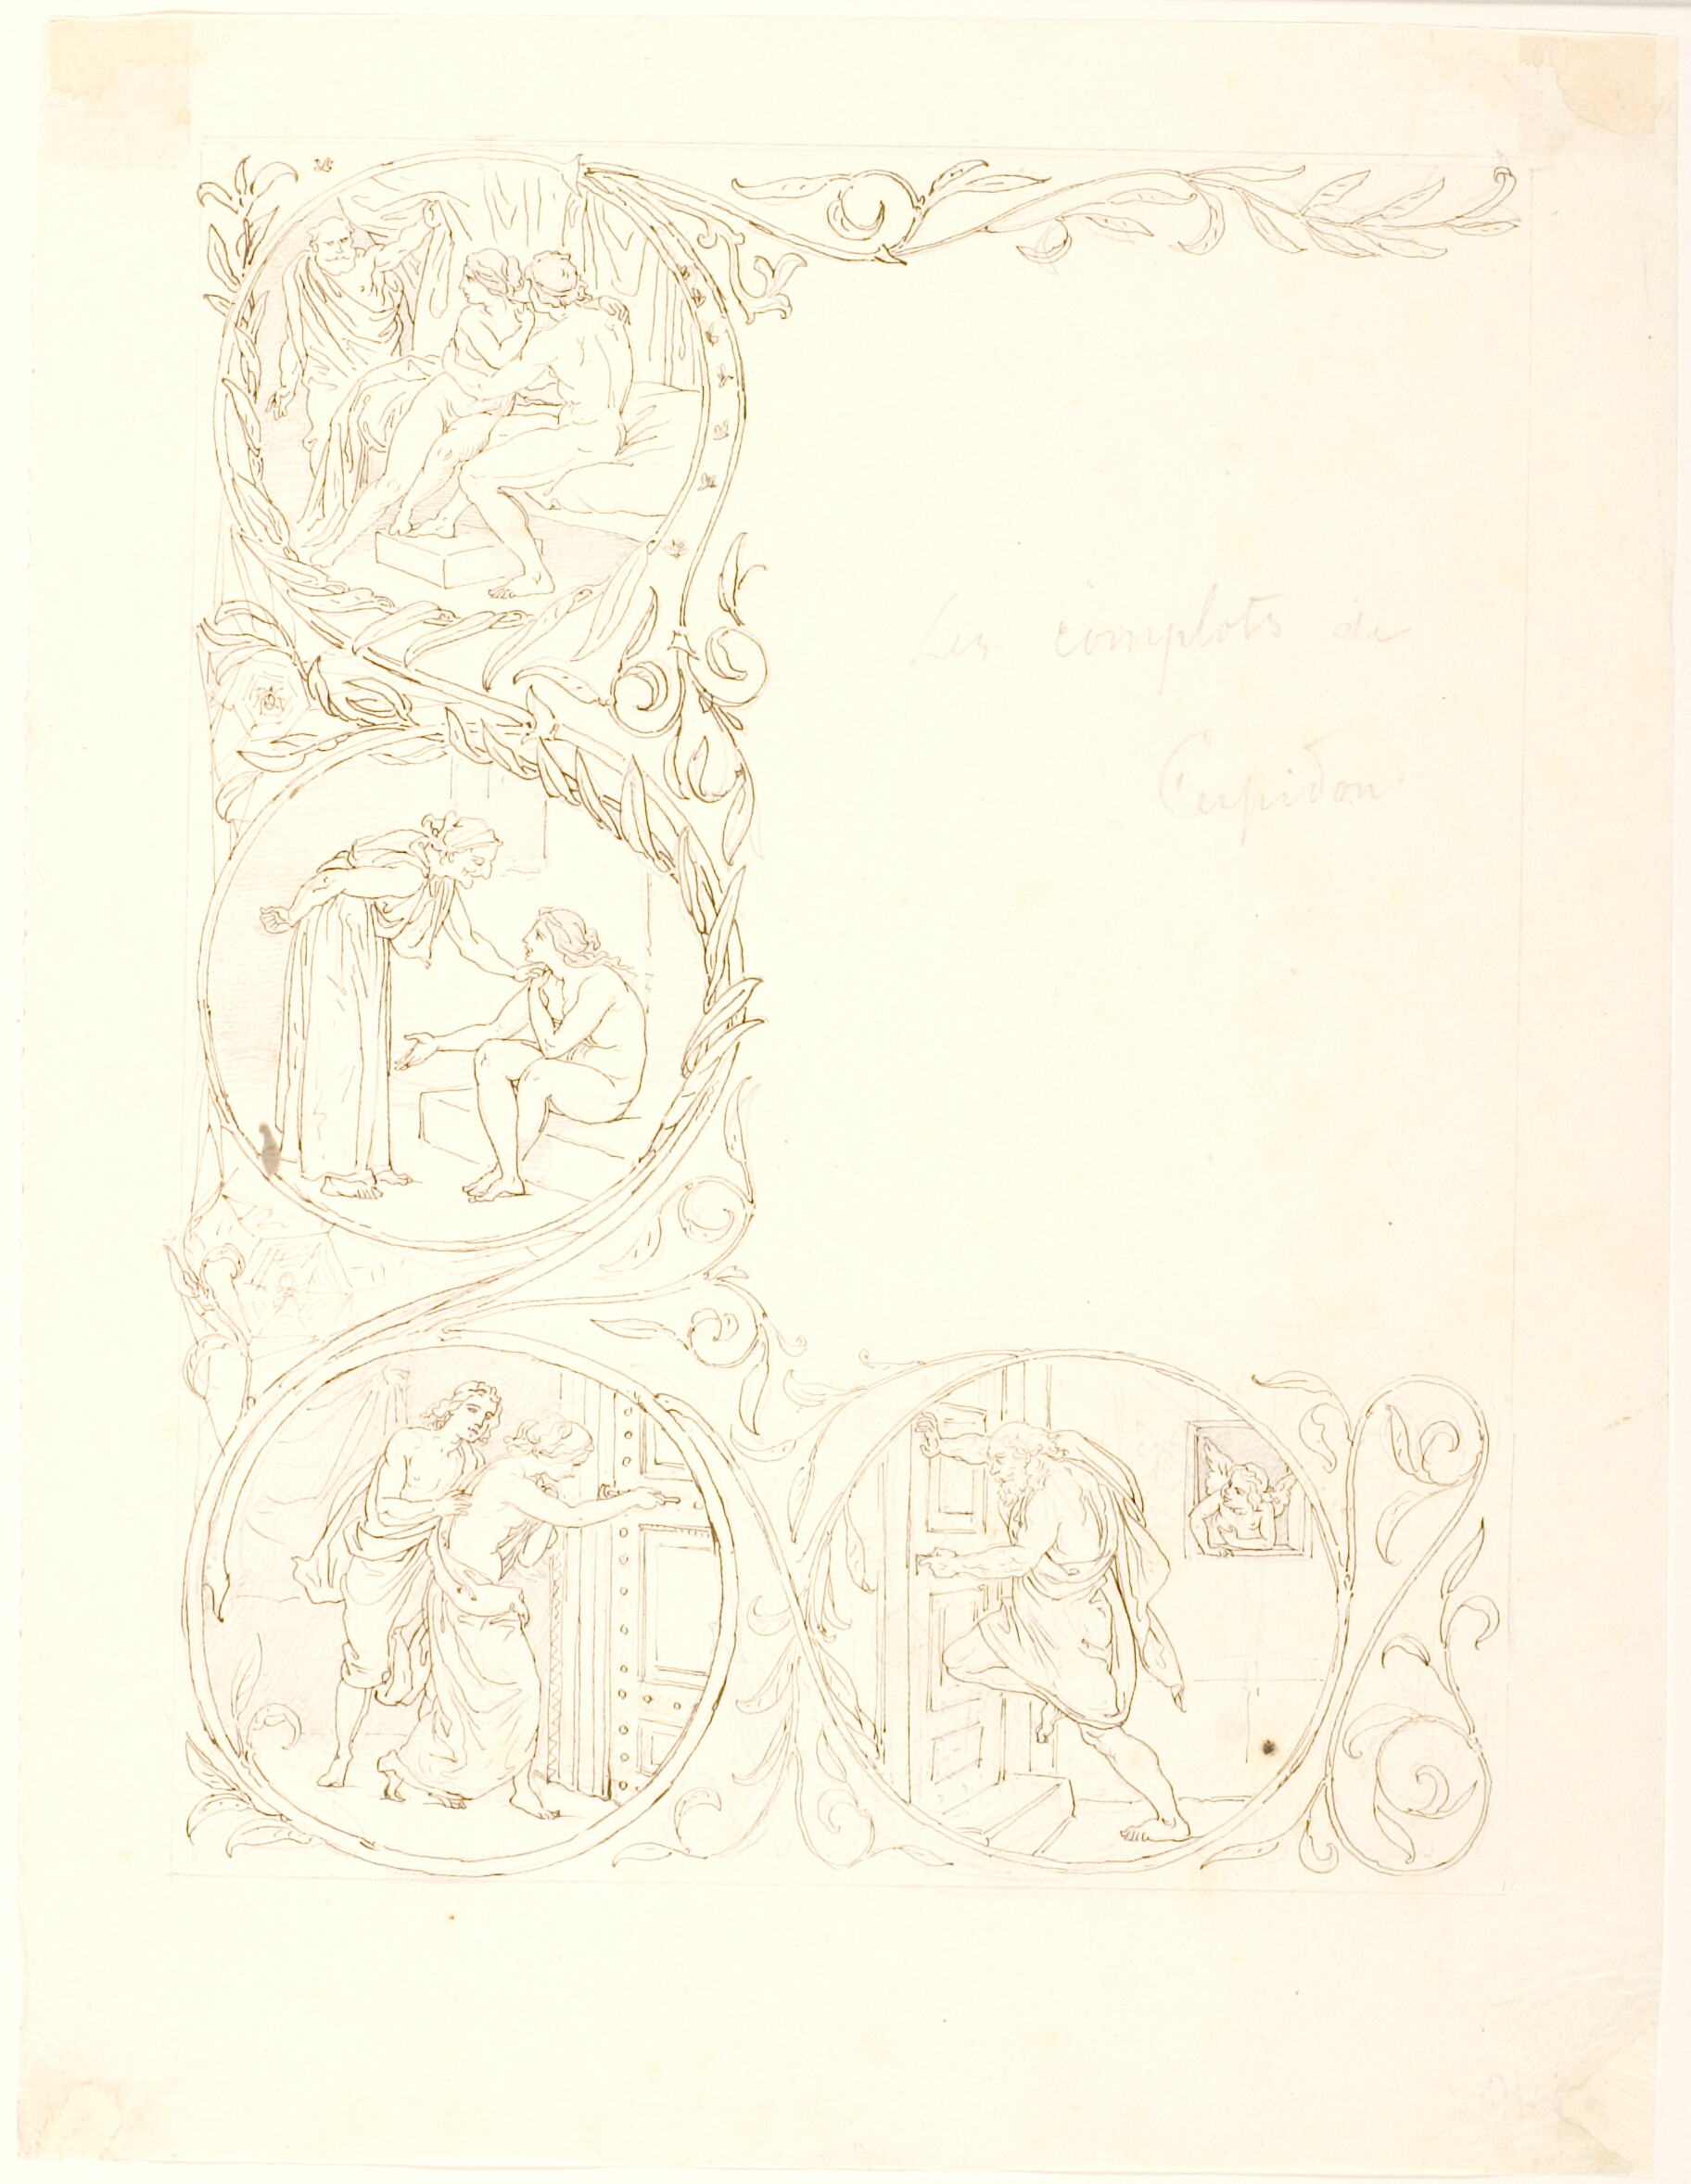 Les complots de
Cupidon